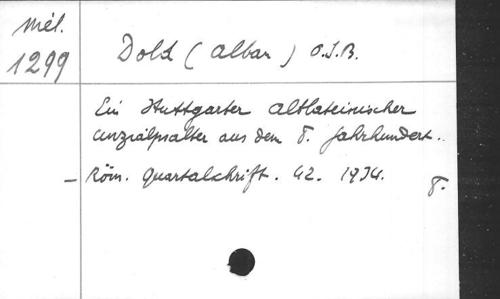 Mél.
1299
Dold (Alban) O.S.B.
Ein Stuttgarter altlateinischer
Unzialpsalter aus dem 8. Jahrhundert.
- Röm. Quartalschrift. 42. 1934.
8.